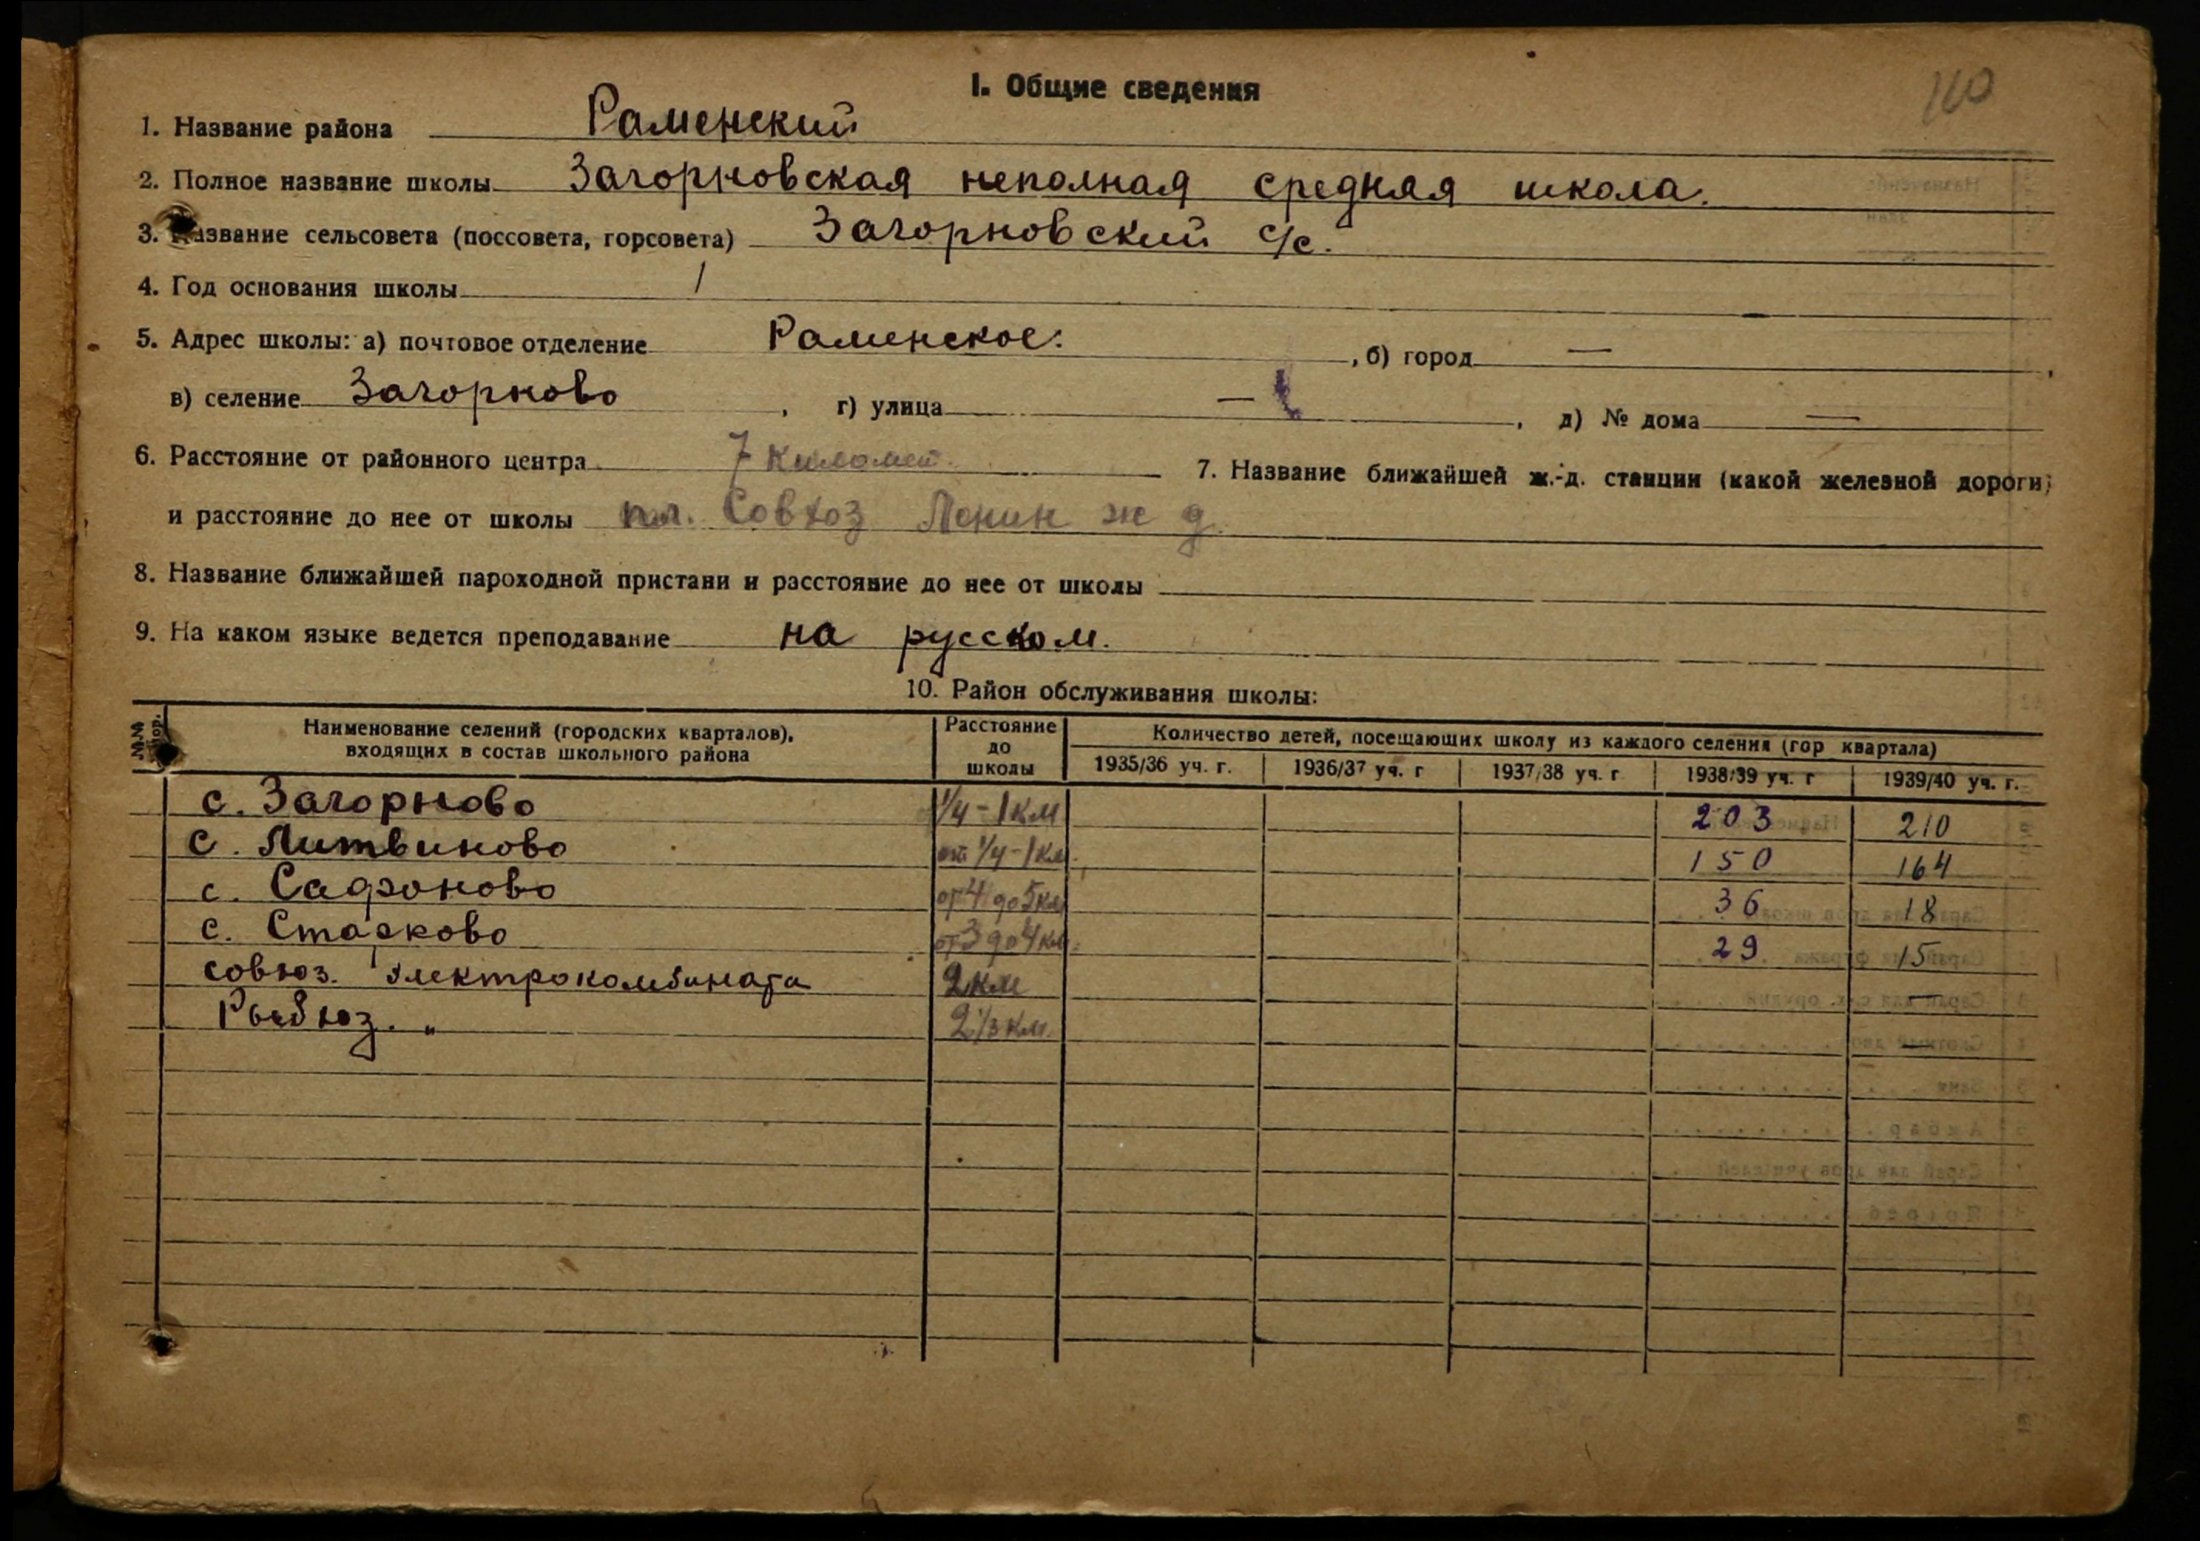 110
I. Общие сведения
1. Название района Раменский
2. Полное название школы Загорновская неполная средняя школа.
3. Название сельсовета (поссовета, горсовета) Загорновский с/с.
4. Год основания школы /
5. Адрес школы: а) почтовое отделение Раменское. , б) город — ,
в) селение Загорново , г) улица — , д) № дома —
6. Расстояние от районного центра 7 километ. 7. Название ближайшей ж.-д. станции (какой железной дороги)
и расстояние до нее от школы пл. Совхоз Ленин ж д
8. Название ближайшей пароходной пристани и расстояние до нее от школы
9. На каком языке ведется преподавание на русском.
10. Район обслуживания школы:
№№ пор. Наименование селений (городских кварталов), входящих в состав школьного района Расстояние до школы Количество детей, посещающих школу из каждого селения (гор квартала)
1935/36 уч. г. 1936/37 уч. г 1937/38 уч. г 1938/39 уч. г 1939/40 уч. г.
с. Загорново 1/4 - 1 км 203 210
с. Литвиново от 1/4 - 1 км. 150 164
с. Сафоново от 4 до 5 км 36 18
с. Старково от 3 до 4 км. 29 15
совхоз. Электрокомбината 2 км —
Рыбхоз. „ 2 1/3 км. —